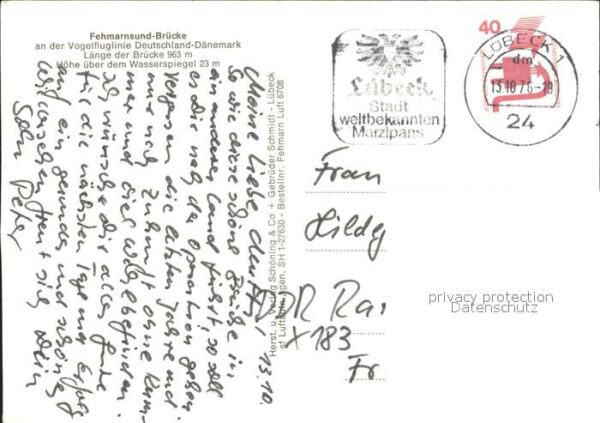 Fehmarnsund-Brücke
an der Vogelfluglinie Deutschland-Dänemark
Länge der Brücke 963 m
Höhe über dem Wasserspiegel 23 m
Meine liebe Mutti, 13.10.
So wie diese schöne Brücke in
ein anderes Land führt, so soll
es dir nach der Operation gehen.
Vergessen die letzten Jahre und
nur noch Zukunft ohne Kum-
mer und viel Wohlbefinden.
Ich wünsche dir alles Gute
für die nächsten Tage und Erfolg
auf ein gesundes und schönes
Wiedersehen freut sich Dein
Sohn Peter
Herst. u. Verlag Schöning & Co + Gebrüder Schmidt - Lübeck
SH 1-27630 - Bestellnr. Fehmarn Luft 6708
Lübeck
Stadt
weltbekannten
Marzipans
40
LÜBECK 1
dm
13.10.76-19
24
Frau
Hildg
DDR Ra
X 183
Fr
privacy protection
Datenschutz